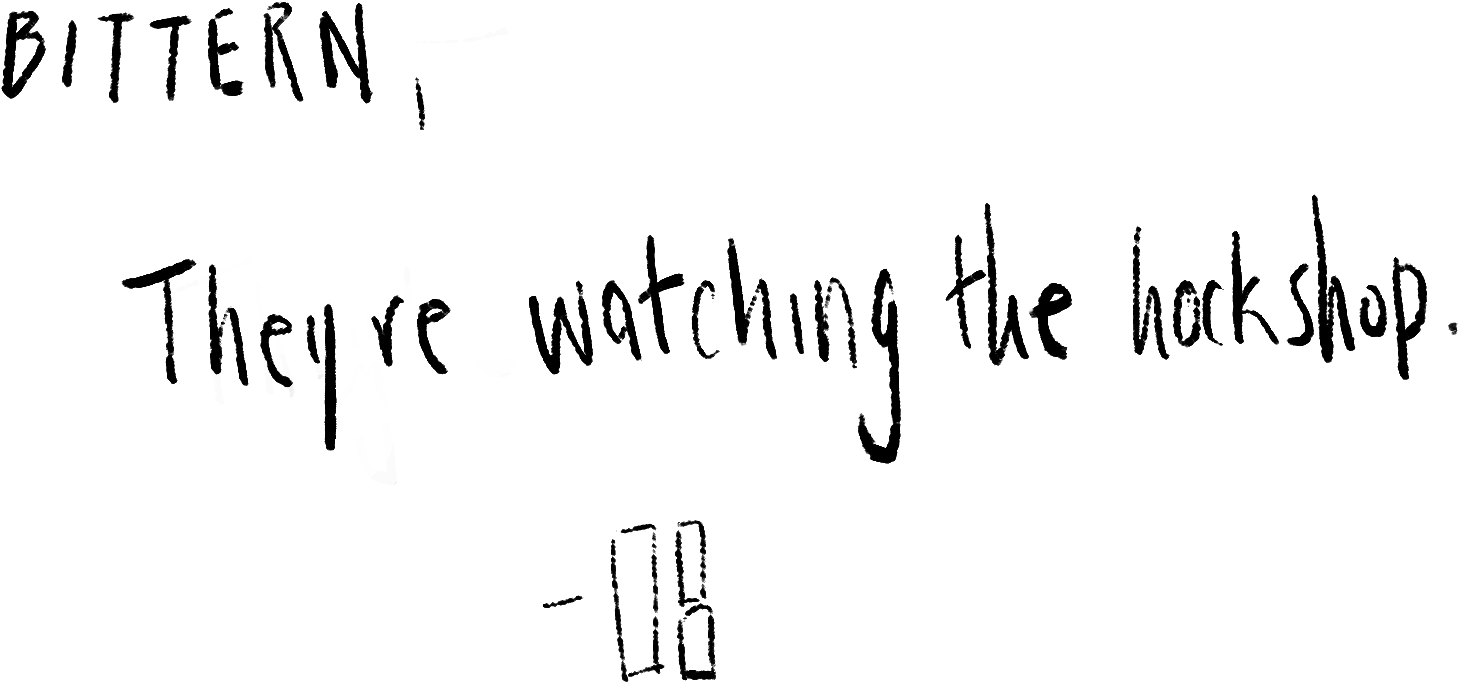 BITTERN,
They're watching the hockshop.
- OB